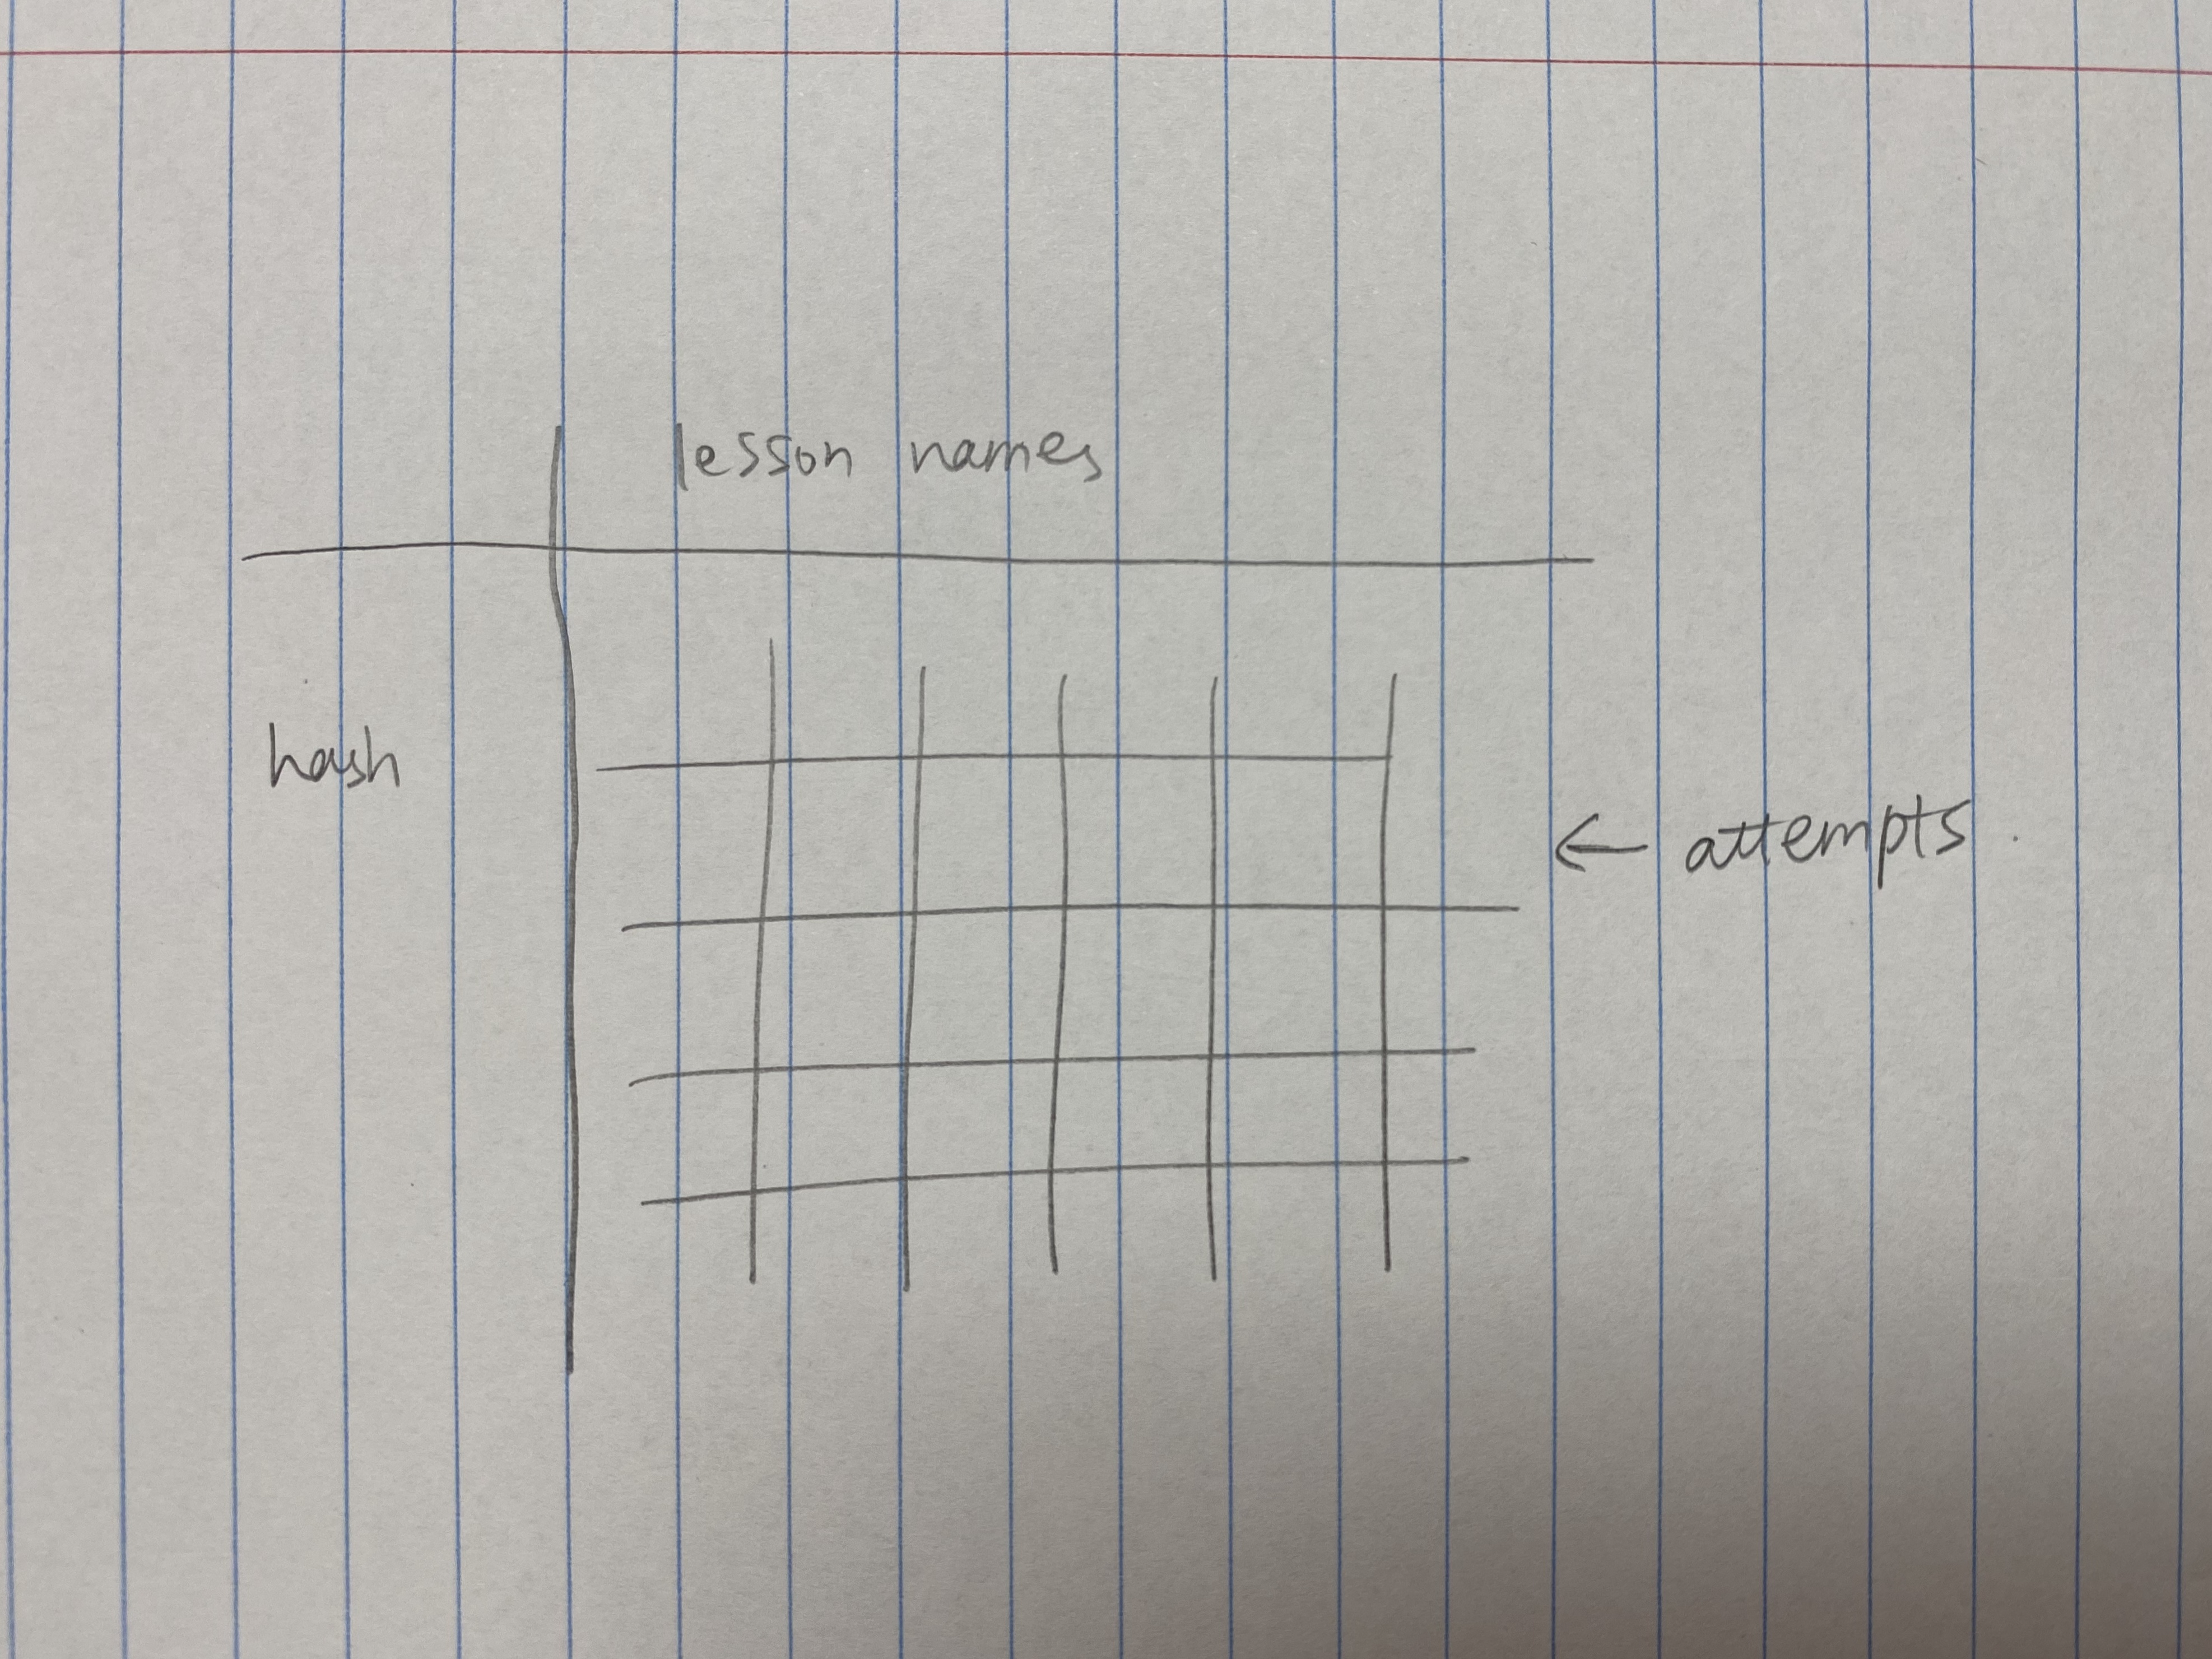 lesson names
hash
← attempts.